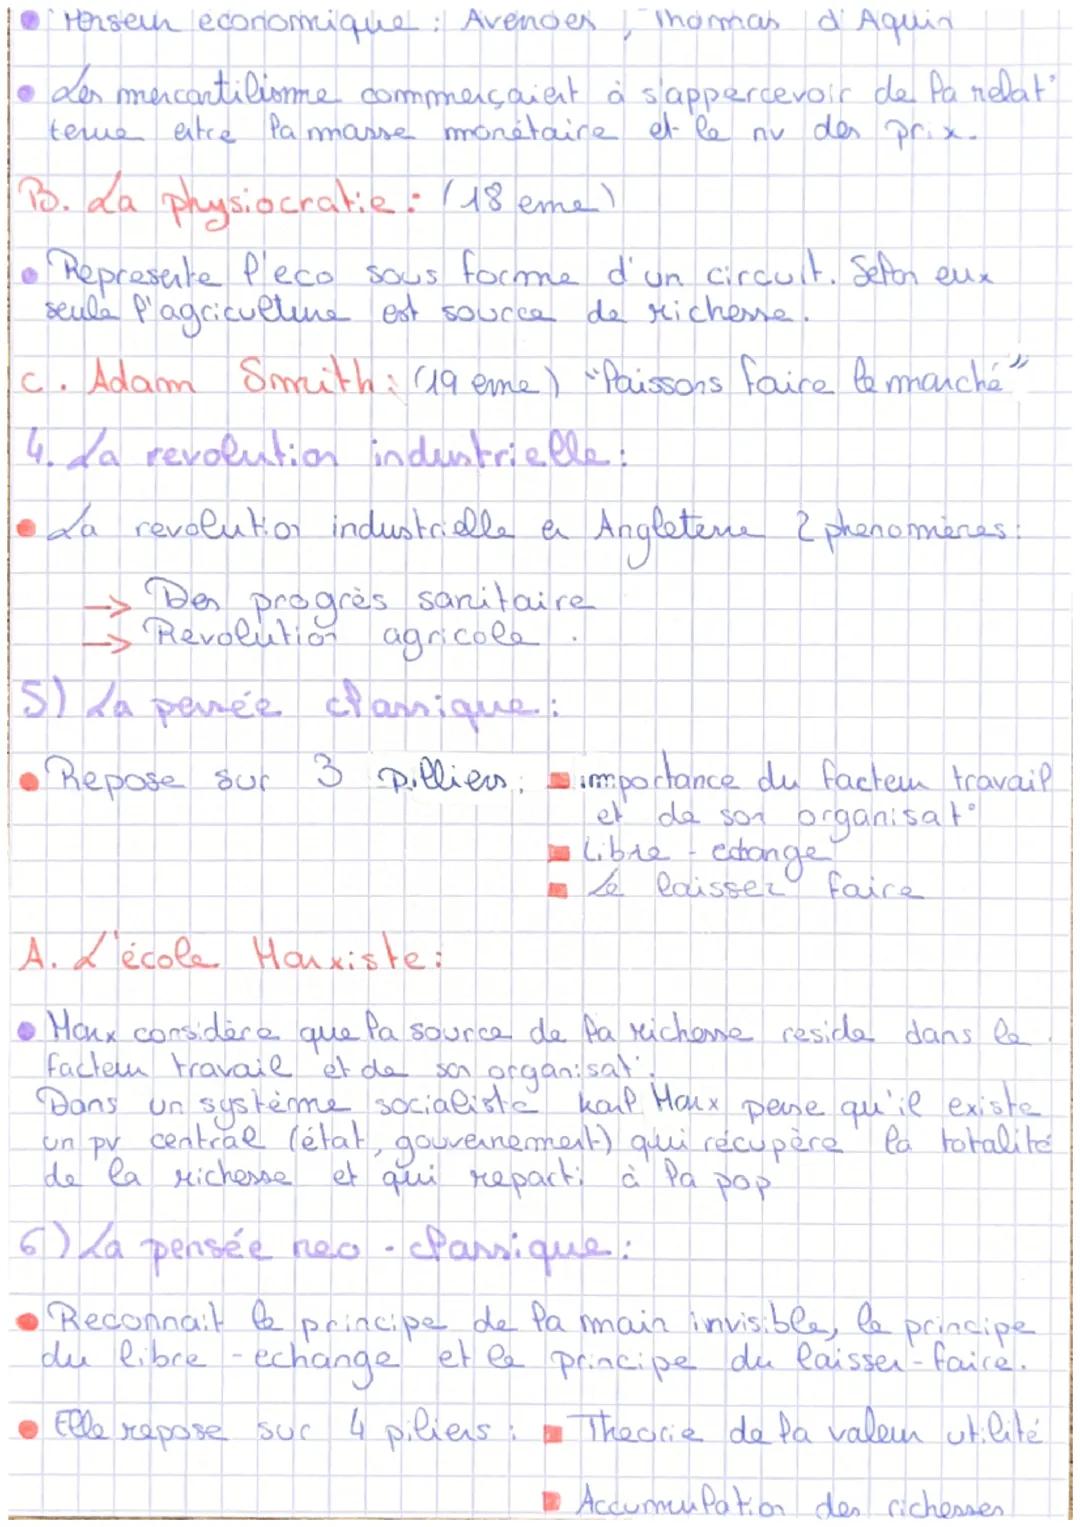 Penseur économique : Averroes, Thomas d'Aquin
Les mercantilisme commerçaient à s'appercevoir de la relat°
tenue entre la masse monétaire et le nv des prix.
B. La physiocratie : (18 eme)
Represente l'eco sous forme d'un circuit. Selon eux
seule l'agriculture est source de richesse.
C. Adam Smith : (19 eme) "laissons faire le marché"
4. La revolution industrielle :
La revolution industrielle en Angleterre 2 phenomènes :
→ Des progrès sanitaire
→ Revolution agricole.
5) La pensée classique :
Repose sur 3 pilliers : importance du facteur travail
et de son organisat°
Libre-echange
Le laisser faire
A. L'école Marxiste :
Marx considère que la source de la richesse reside dans le
facteur travail et de son organisat°.
Dans un système socialiste karl Marx pense qu'il existe
un pv central (état, gouvernement) qui récupère la totalité
de la richesse et qui reparti à la pop
6) La pensée neo-classique :
Reconnait le principe de la main invisible, le principe
du libre-echange et le principe du laisser-faire.
Elle repose sur 4 piliers : Theorie de la valeur utilité
Accumulation des richesses